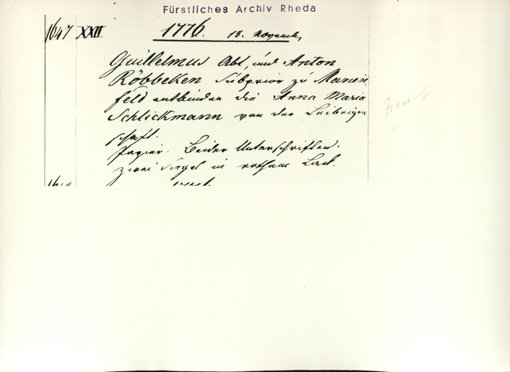 Fürstliches Archiv Rheda
1647 XXII 1776. 18. Novemb.
Guillelmus Abt, und Anton
Röbbeken Subprior zu Marien
feld entbinden die Anna Maria
Schlickmann von der Leibeigen
schaft.
Papier. Beider Unterschriften.
zwei Siegel in rothem Lack.